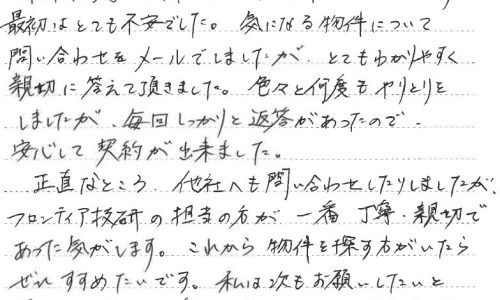 最初はとても不安でした。気になる物件について
問い合わせをメールでしましたが、とてもわかりやすく
親切に答えて頂きました。色々と何度もやりとりを
しましたが、毎回しっかりと返答があったので、
安心して契約が出来ました。
正直なところ、他社へも問い合わせしたりしましたが、
フロンティア技研の担当の方が一番丁寧・親切で
あった気がします。これから物件を探す方がいたら
ぜひすすめたいです。私は次もお願いしたいと